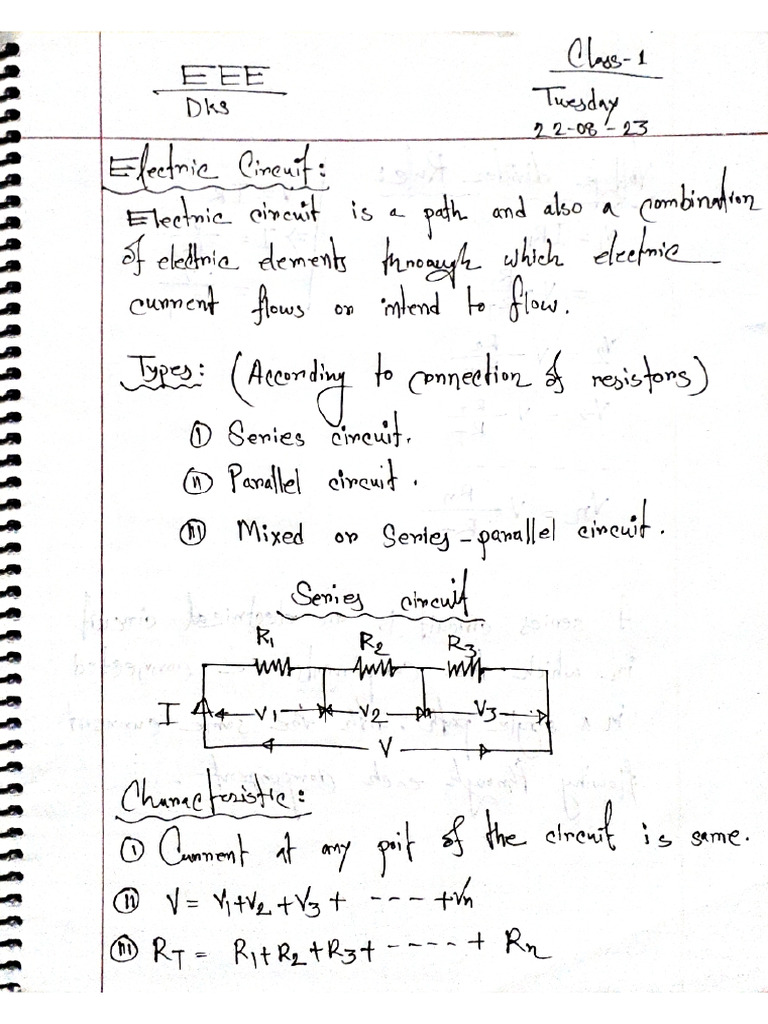 EEE
DKS
Class-1
Tuesday
22-08-23
Electric Circuit:
Electric circuit is a path and also a combination
of electric elements through which electric
current flows or intend to flow.
Types: (According to connection of resistors)
(i) Series circuit.
(ii) Parallel circuit.
(iii) Mixed or Series-parallel circuit.
Series circuit
R1 R2 R3
I V1 V2 V3
V
Characteristic:
(i) Current at any poit of the circuit is same.
(ii) V = V1+V2+V3+ ---- +Vn
(iii) RT = R1+R2+R3+ ----- + Rn